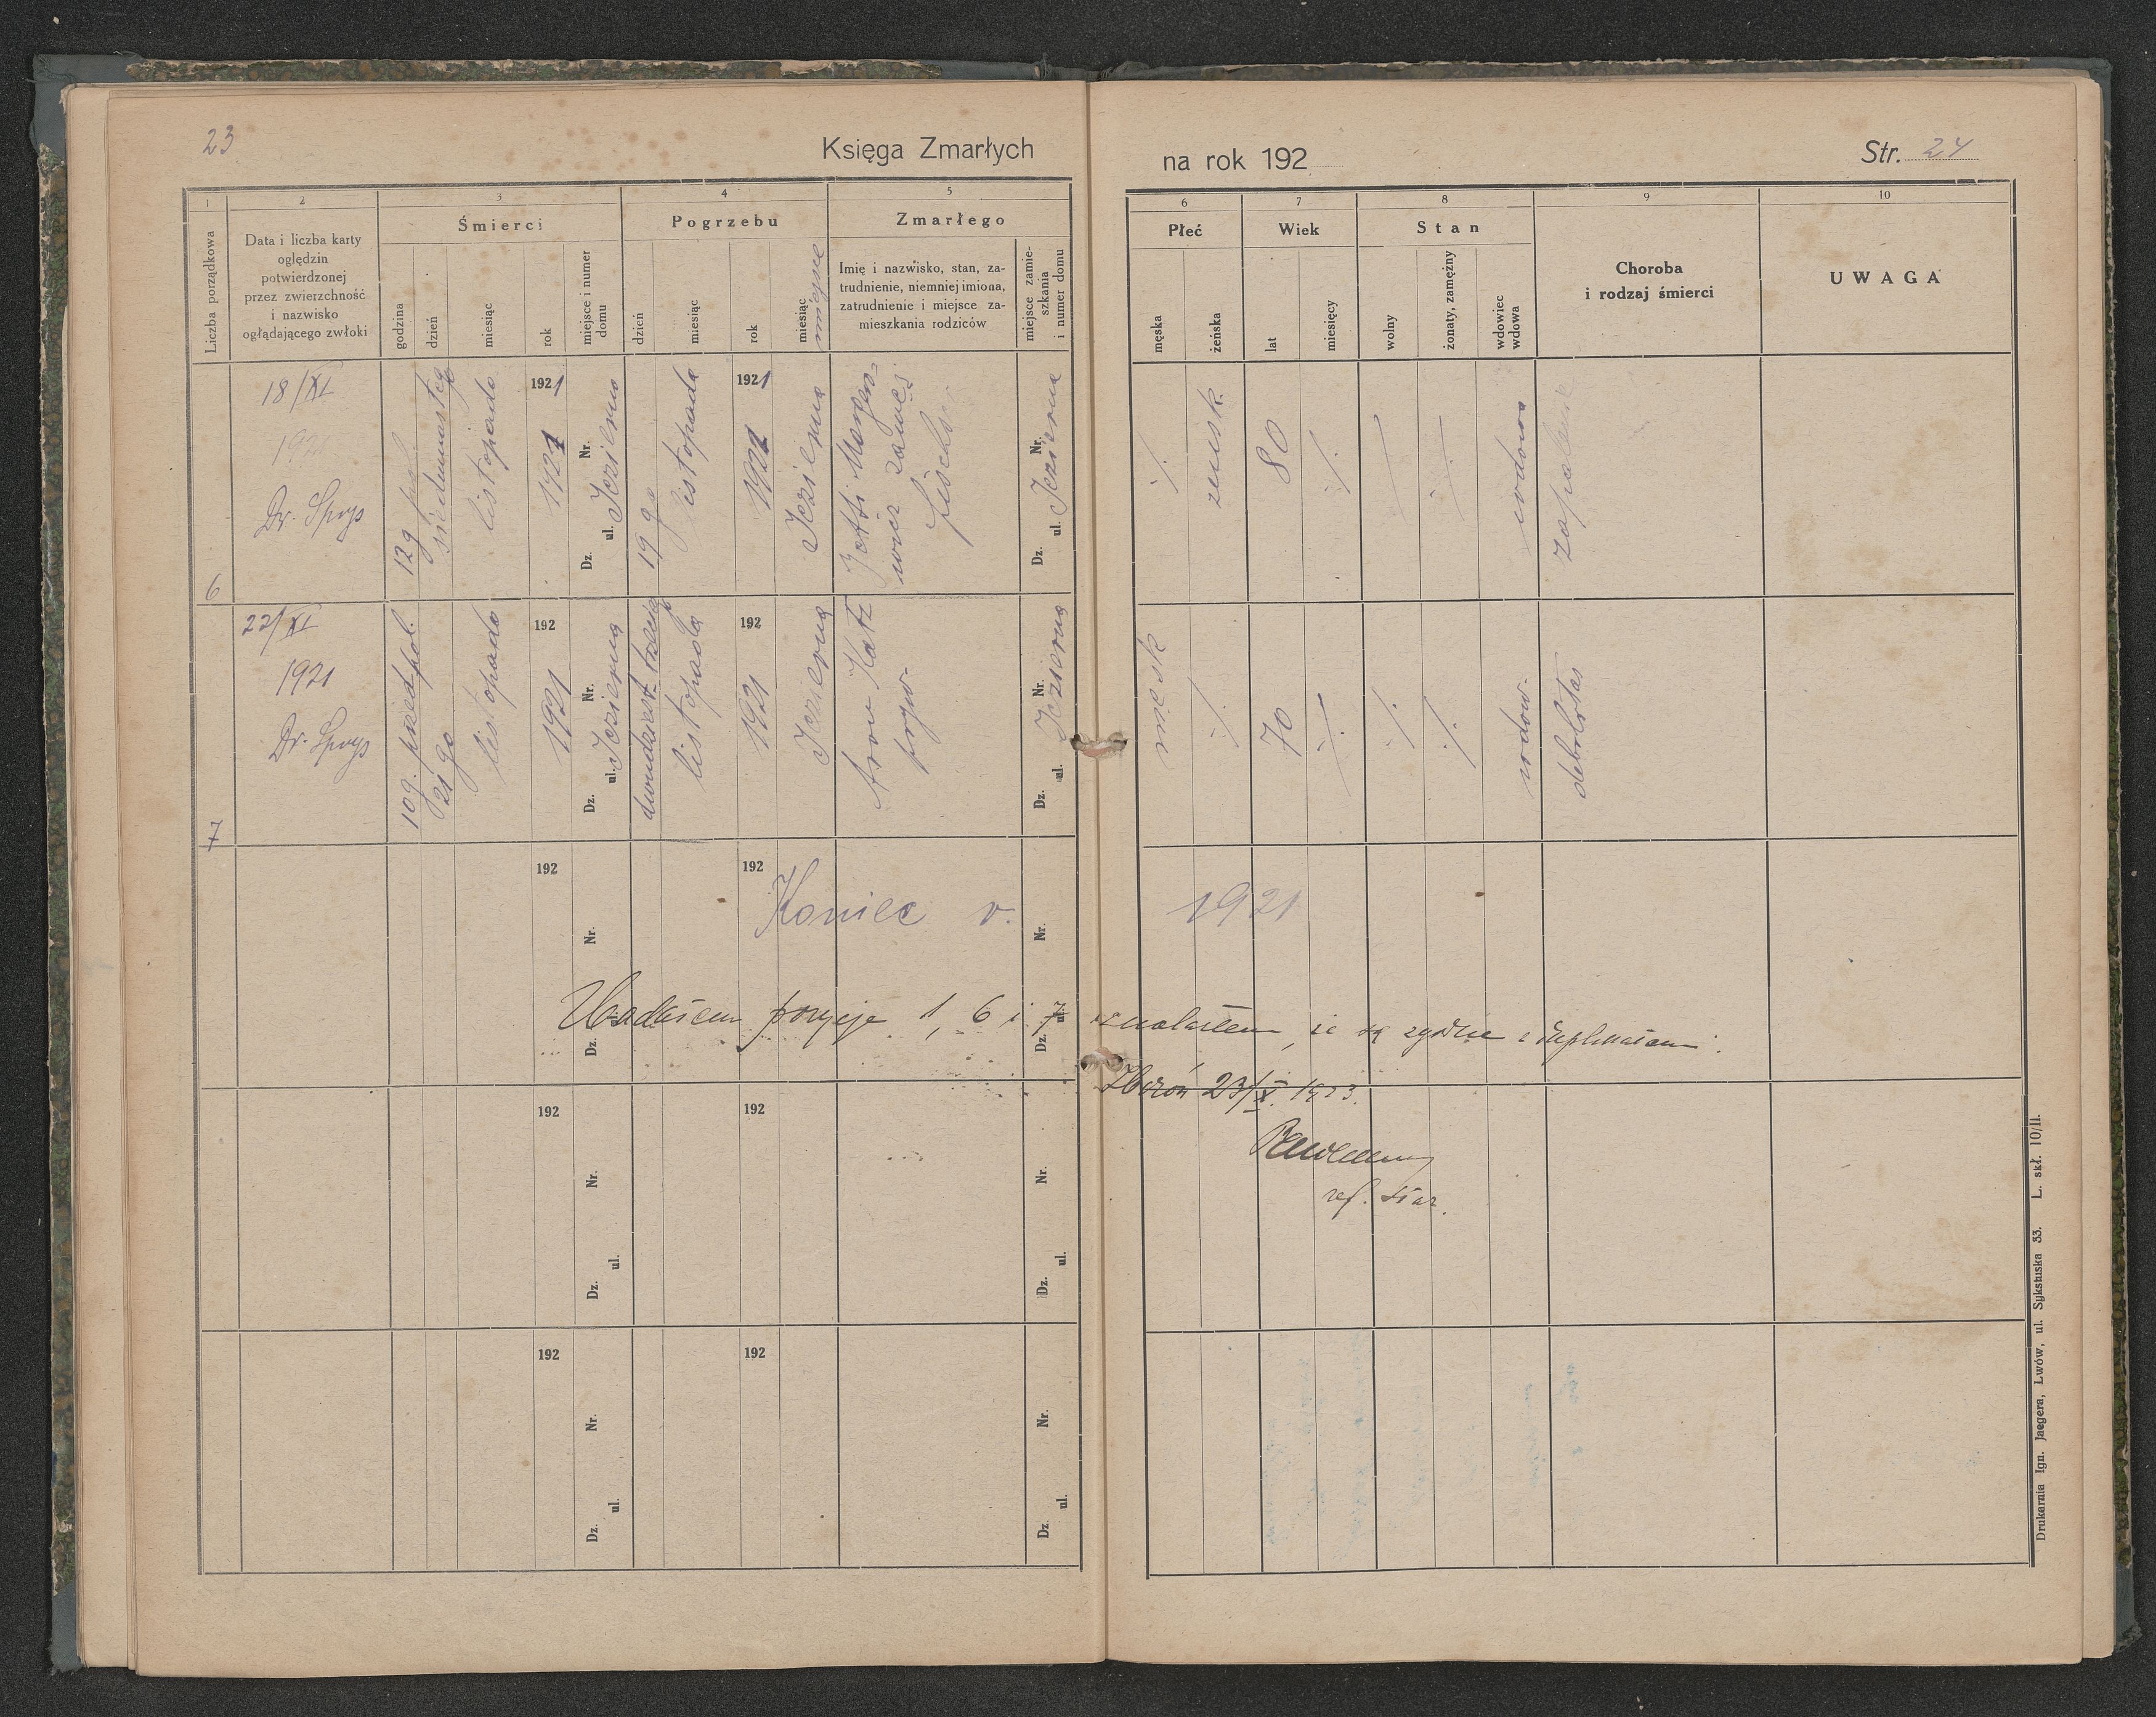 23
Księga Zmarłych
na rok 192
Str. 24
1
2
3
4
5
6
7
8
9
10
Liczba porządkowa
Data i liczba karty
oględzin
potwierdzonej
przez zwierzchność
i nazwisko
oglądającego zwłoki
Śmierci
godzina
dzień
miesiąc
rok
miejsce i numer
domu
Pogrzebu
dzień
miesiąc
rok
miesiąc
miejsce
Zmarłego
Imię i nazwisko, stan, za-
trudnienie, niemniej imiona,
zatrudnienie i miejsce za-
mieszkania rodziców
miejsce zamie-
szkania
i numer domu
Płeć
męska
żeńska
Wiek
lat
miesięcy
Stan
wolny
żonaty, zamężny
wdowiec
wdowa
Choroba
i rodzaj śmierci
UWAGA
6
18/XI
1921
Dr. Spys
12 g poł.
siedemnastego
listopada
1921
1921
Dz. ul. Nr.
Jezierna
19 go
listopada
1921
1921
Jezierna
Morgen-
Dz. ul. Nr.
Jezierna
żeńsk.
80
wdowa
7
22/XI
1921
Dr. Spys
10 g. przedpoł.
21 go
listopada
192
1921
Dz. ul. Nr.
Jezierna
listopada
192
1921
Jezierna
Aron Katz
pryw.
Dz. ul. Nr.
Jezierna
męsk
70
wdow.
192
192
Dz. Nr.
Dz. ul. Nr.
Koniec r. 1921
Zbadałem pozycje 1, 6 i 7 i znalazłem, że są zgodne z duplikatem.
Zborów 23/X. 1923.
ref. star.
192
192
Dz. ul. Nr.
Dz. ul. Nr.
192
192
Dz. ul. Nr.
Dz. ul. Nr.
Drukarnia Ign. Jaegera, Lwów, ul. Sykstuska 33. L. skł. 10/II.